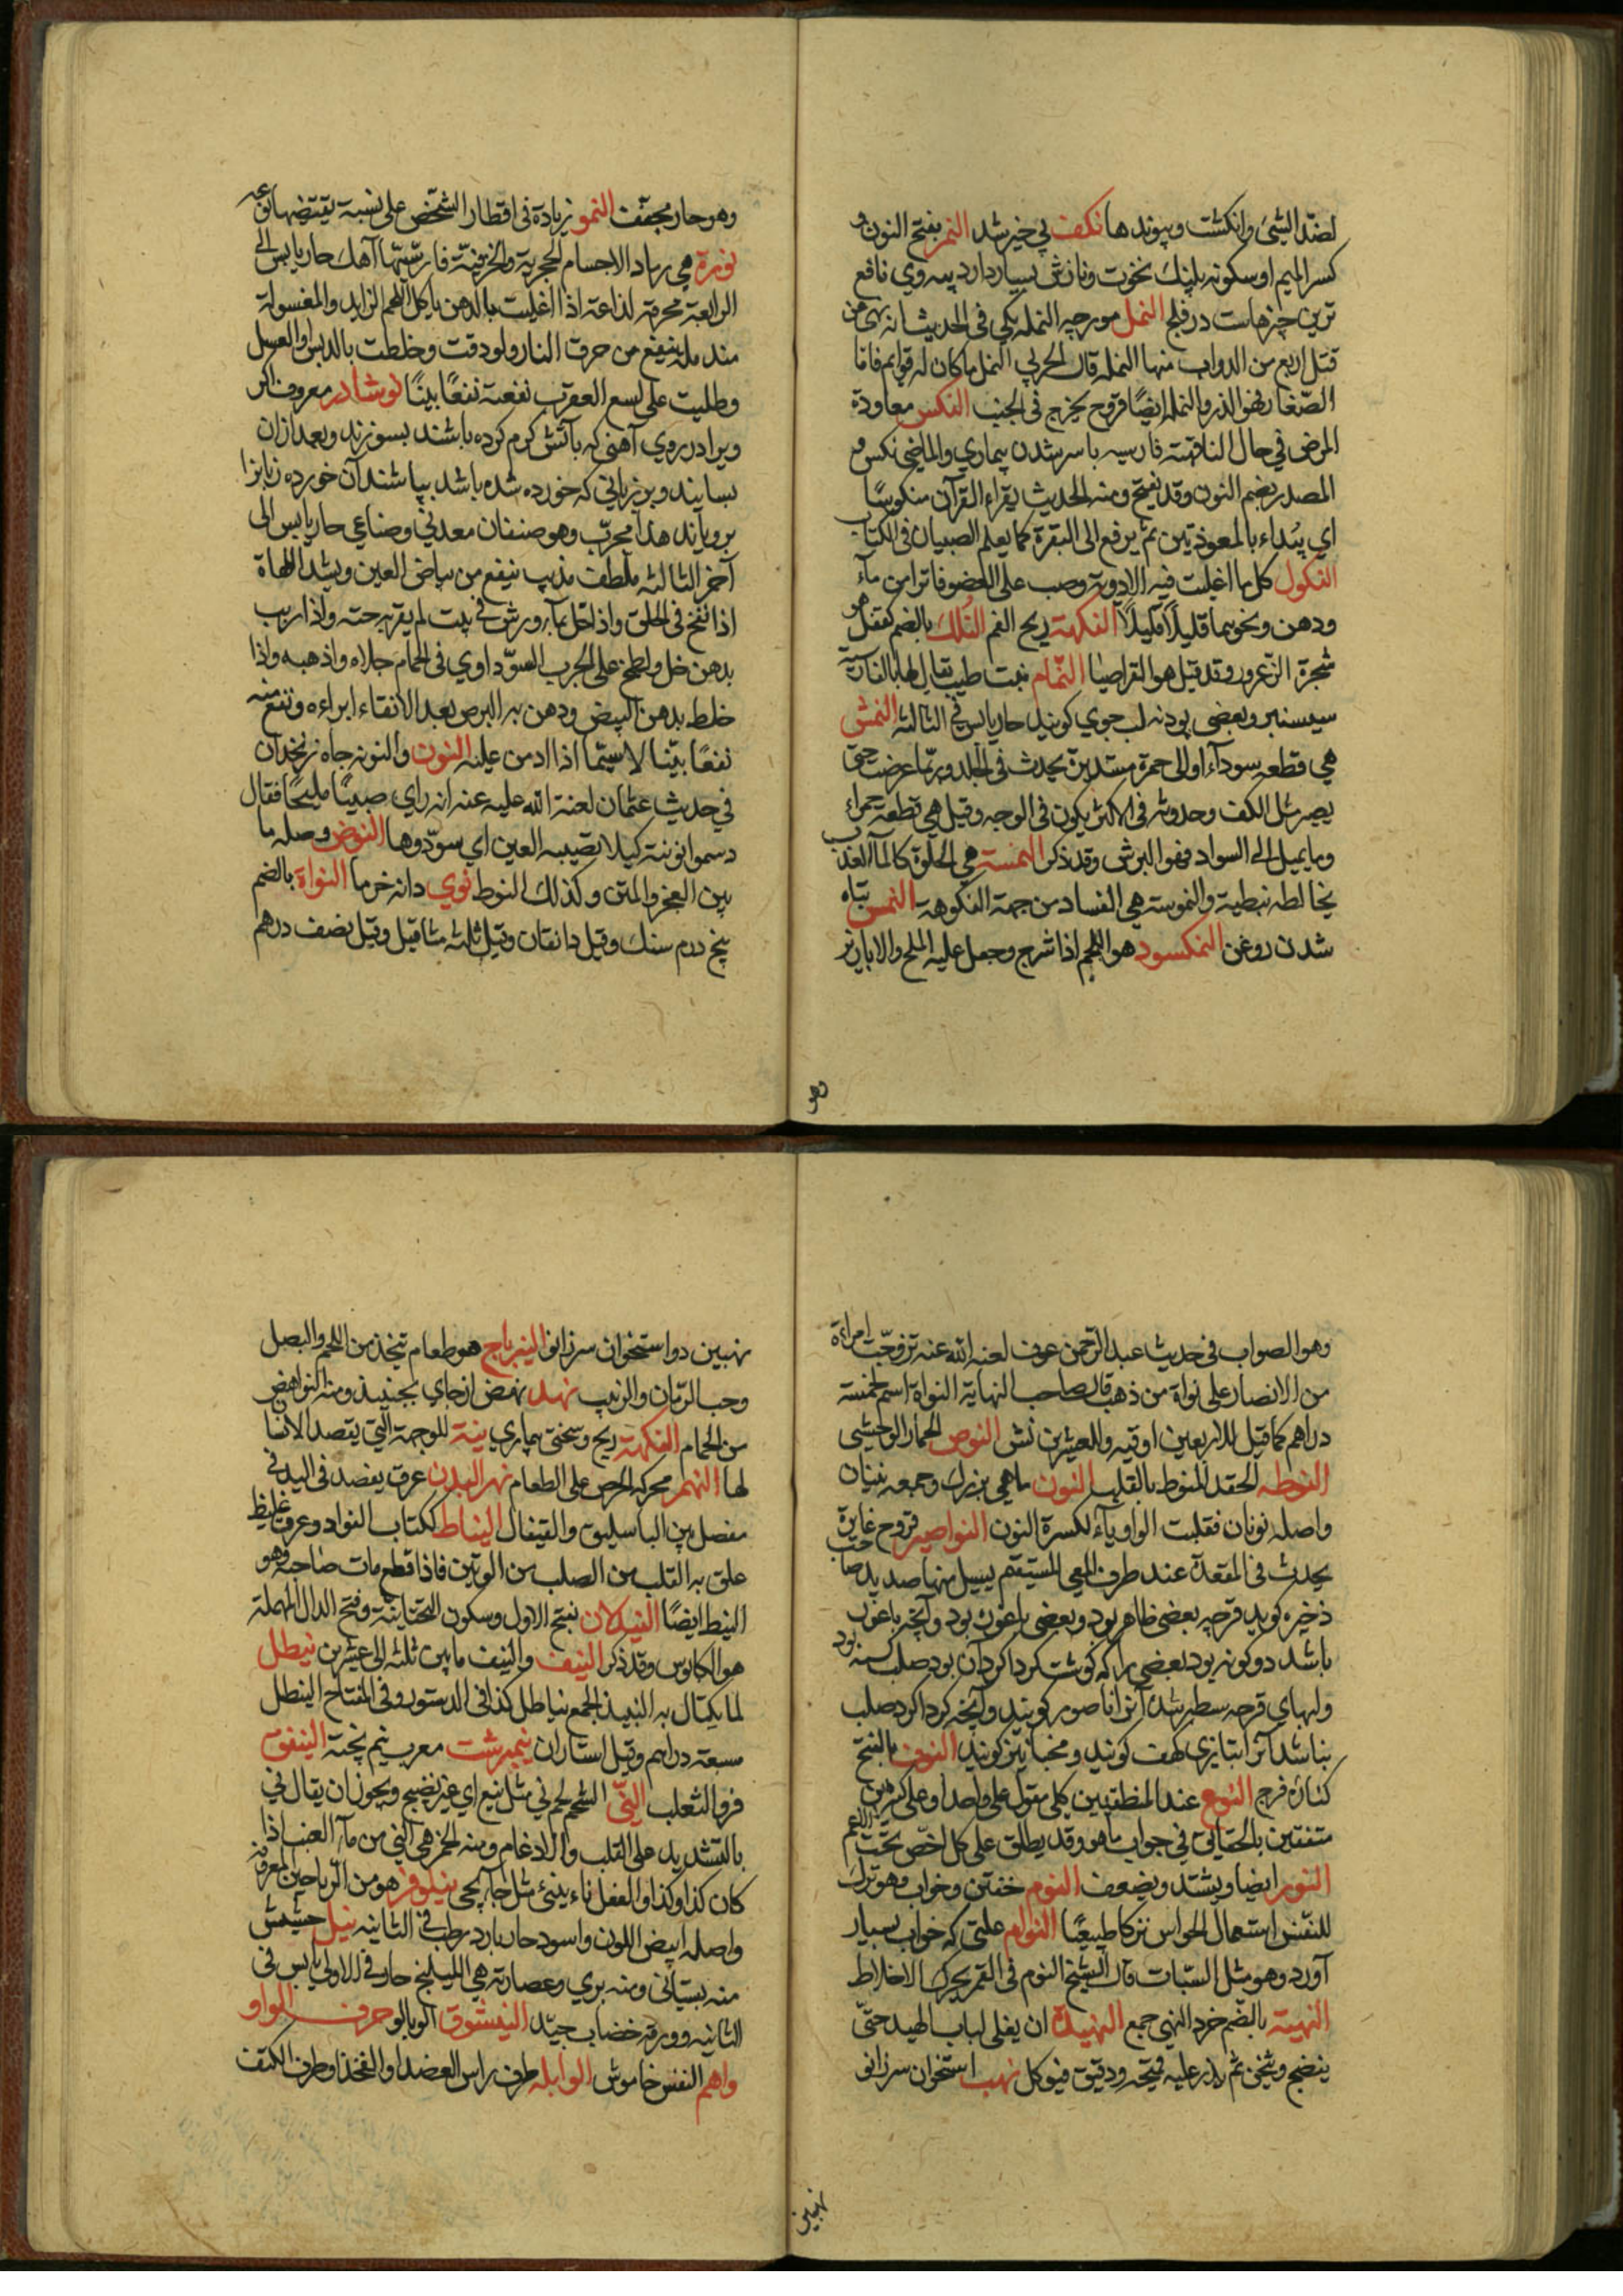 لضدّ الشیئ وانکشت وپیوندها نکف پی خیز شد النمر بفتح النون و
کسر المیم او سکونه پلنک نخوت ونازش بسیار دارد پیه وی نافع
ترین چیزهاست در فلج النمل مورچه النمله یکی فی الحدیث انه نهی عن
قتل اربع من الدواب منها النمله قال الحربی النمل ما کان له قوایم فاما
الصّغار فهو الذر والنمله ایضًا قروح یخرج فی الجنب النکس معاودة
المرض فی حال النقاهة فارسیه باسر شدن بیماری والماضی نکس و
المصدر بضم النون وقد یفتح ومنه الحدیث یقراء القرآن منکوسًا
ای یبُداء بالمعوذتین ثم یرفع الی البقرة کما یعلم الصبیان فی الکتاب
النکول کل ما اغلیت فیه الادویة وصب علی العضو فاترا من مآء
ودهن ونحوهما قلیلًا قلیلًا النکهة ریح الفم النُلک بالضم کقفل هو
شجرة الزعرور وقد قیل هو القراصیا النّمام نبت طیب یقال لها بالفارسیة
سیسنبر وبعضی پودنه لب جوی کویند حار یابس فی الثالثه النمش
هی قطعه سودآء او الی حمرة مستدیرة یحدث فی الجلد وربّما عرضت حتی
یصیر مثل الکف وحدوثه فی الاکثر یکون فی الوجه وقیل هی قطعة حمراء
وما یمیل الی السواد فهو البرش وقد ذکر النمسة هی الحلوة کالمآء العذب
یخالطه نبطیة والنموسة هی الفساد من جهة الفکوهة النمس تباه
شدن روغن النمکسود هو اللحم اذا شرح وجعل علیه الملح والابازیر
وهو
وهو حار مجفّف النمو زیادة فی اقطار الشخص علی نسبة یقتضیها نوعه
نورة هی رماد الاجسام الحجریة والخزفیّة فارسیّتها آهک حار یابس الی
الرابعة محرقة لذاعة اذا اغلیت بالدهن یاکل اللحم الزاید والمغسولة
مندمله ینفع من حرق النار ولو دقت وخلطت بالدبس او العسل
وطلیت علی لسع العقرب نفعته نفعًا بینًا نوشادر معروف اکر
ویرا در روی آهنی که بآتش کرم کرده باشند بسوزند وبعد ازان
بسایند وبر زبانی که خورده شده باشد بپاشند آن خورده زبانرا
برویاند هذا مجرّب وهو صنفان معدنی وصناعی حار یابس الی
آخر الثالثه ملطف مذیب ینفع من بیاض العین ویشد اللهاة
اذا نفخ فی الحلق واذا حل بمآء ورش فی بیت لم یقربه حیة واذا اذیب
بدهن خل ولطخ علی الجرب السوّداوی فی الحمام جلاه واذهبه واذا
خلط بدهن البیض ودهن به البرص بعد الانقاء ابراءه ونفع منه
نفعًا بیّنا لاسیّما اذا ادمن علیه النون والنونه چاه زنخدان
فی حدیث عثمان لعنة الله علیه عنه انه رای صبیّا ملیحًا فقال
دسموا نونته کیلا یصیبه العین ای سوّدوها النوض وصله ما
بین العجز والمتن وکذلک النوط نوی دانه خرما النواة بالضم
پنج درم سنک وقیل دانقان وقیل ثلثه مثاقیل وقیل نصف درهم
وهو الصواب فی حدیث عبد الرحمن عوف لعنه الله عنه تزوّجت امراءة
من الانصار علی نواة من ذهب قال صاحب النهایة النواة اسم لخمسة
دراهم کما قیل للاربعین اوقیه وللعشرین نش النوص الحمار الوحشی
النوطه الحقد المنوط بالقلب النون ماهی بزرک وجمعه نینان
واصله نونان فقلبت الواو یآء لکسرة النون النواصیر قروح غایرة
یحدث فی المقعدة عند طرف المعی المستقیم یسیل منها صدید صاحب
ذخیره کوید قرحه بعضی ظاهر بود وبعضی باغور بود وآنچه باغور
باشد دو کونه بود بعضی را که کوشت کرداکرد آن بود صلب کشته بود
ولبهای قرحه سطبر شده آنرا ناصور کویند وآنچه کرداکرد صلب
نباشد آنرا بتازی کهف کویند ومخبا نیز کویند النوف بالفتح
کناره فرج النوع عند المنطقیین کلی مقول علی واحد او علی کثیرین
متفقین بالحقایق فی جواب ما هو وقد یطلق علی کل اخصّ تحت الاعم
النور ایضا ویشتد ویضعف النوم خفتن وخواب وهو ترک
للنفس استعمال الحواس ترکا طبیعًیا النوام علتی که خواب بسیار
آورد وهو مثل السّبات قال الشیخ النوم فی القمر یحرک الاخلاط
النهیة بالضم خرد النهی جمع النهیدة ان یغلی لباب الهبید حتّی
ینضج ویثخن ثم یذر علیه قمیحة ودقیق فیوکل نهب استخوان سر زانو
نهبین
نهبین دو استخوان سر زانو النیرباج هو طعام یتخذ من اللحم والبصل
وحب الرمّان والزبیب نهد نهض از جای بجنبید ومنه النواهض
من الحمام النکهة ریح وسختی بیماری نیة للوجهة الّتی یقصد الانسا
لها النهم محرکه الحرص علی الطعام نهر البدن عرق یفصد فی الید فی
مفصل بین الباسلیق والقیفال النیاط لکتاب الفواد وعرق غلیظ
علق به القلب من الصلب من الوتین فاذا قطع مات صاحبه وهو
النیط ایضًا النیدلان بفتح الاول وسکون التحتانیة وفتح الدال المهملة
هو الکابوس وقد ذکر النیف والنیف ما بین ثلثه الی عشرین نیطل
لما یکتال به النبیذ الجمع نیاطل کذا فی الدستور وفی المفتاح النیطل
سبعة دراهم وقیل استاران نیمبرشت معرب نیم پخته النیفق
فرو الثعلب النّی الشحم لحم نی مثل نیع ای غیر نضیج ویجوز ان یقال نی
بالتشدید علی القلب والادغام ومنه الخمر هی النی من مآء العنب اذا
کان کذا وکذا والفعل ناء ینیئ مثل جاء یجئ نیلوفر هو من الریاحین المعروفه
واصله ابیض اللون واسود حار بارد رطب فی الثانیه نیل حشیش
منه بستانی ومنه بری وعصارته هی النیلنج حار فی الاولی یابس فی
الثانیه وورقه خضاب جیّد النیشوق آلوبالو حرف الواو
واهم النفس خاموش الوابله طرف راس العضد او الفخذ او طرف الکتف